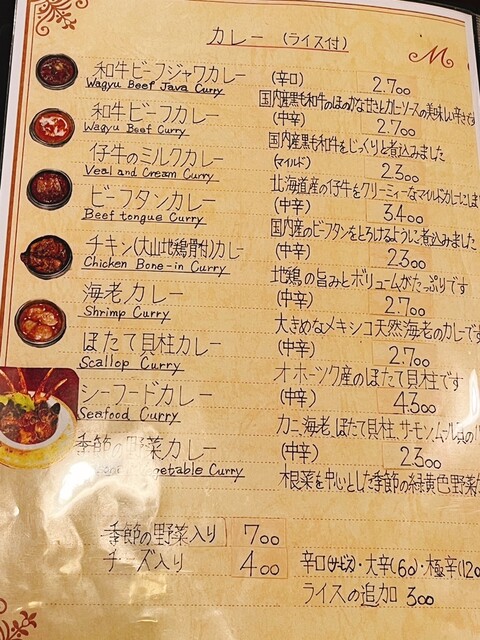 カレー (ライス付)
M
和牛ビーフジャワカレー (辛口) 2.700
Wagyu Beef Java Curry
国内産黒毛和牛のほのかな甘さとカレーソースの美味しい辛さです
和牛ビーフカレー (中辛) 2.700
Wagyu Beef Curry
国内産黒毛和牛をじっくりと煮込みました
仔牛のミルクカレー (マイルド) 2.300
Veal and Cream Curry
北海道産の仔牛をクリーミィーなマイルドカレーにしま
ビーフタンカレー (中辛) 3.400
Beef tongue Curry
国内産のビーフタンをとろけるように煮込みました
チキン(大山地鶏骨付)カレー (中辛) 2.300
Chicken Bone-in Curry
地鶏の旨みとボリュームがたっぷりです
海老カレー (中辛) 2.700
Shrimp Curry
大きめなメキシコ天然海老のカレーです
ほたて貝柱カレー (中辛) 2.700
Scallop Curry
オホーツク産のほたて貝柱です
シーフードカレー (中辛) 4.300
Seafood Curry
カニ、海老、ほたて貝柱、サーモン、ムール貝の
季節の野菜カレー (中辛) 2.300
Vegetable Curry
根菜を中心とした季節の緑黄色野菜
季節の野菜入り 700
チーズ入り 400
辛口(サービス)・大辛(60)・極辛(120
ライスの追加 300